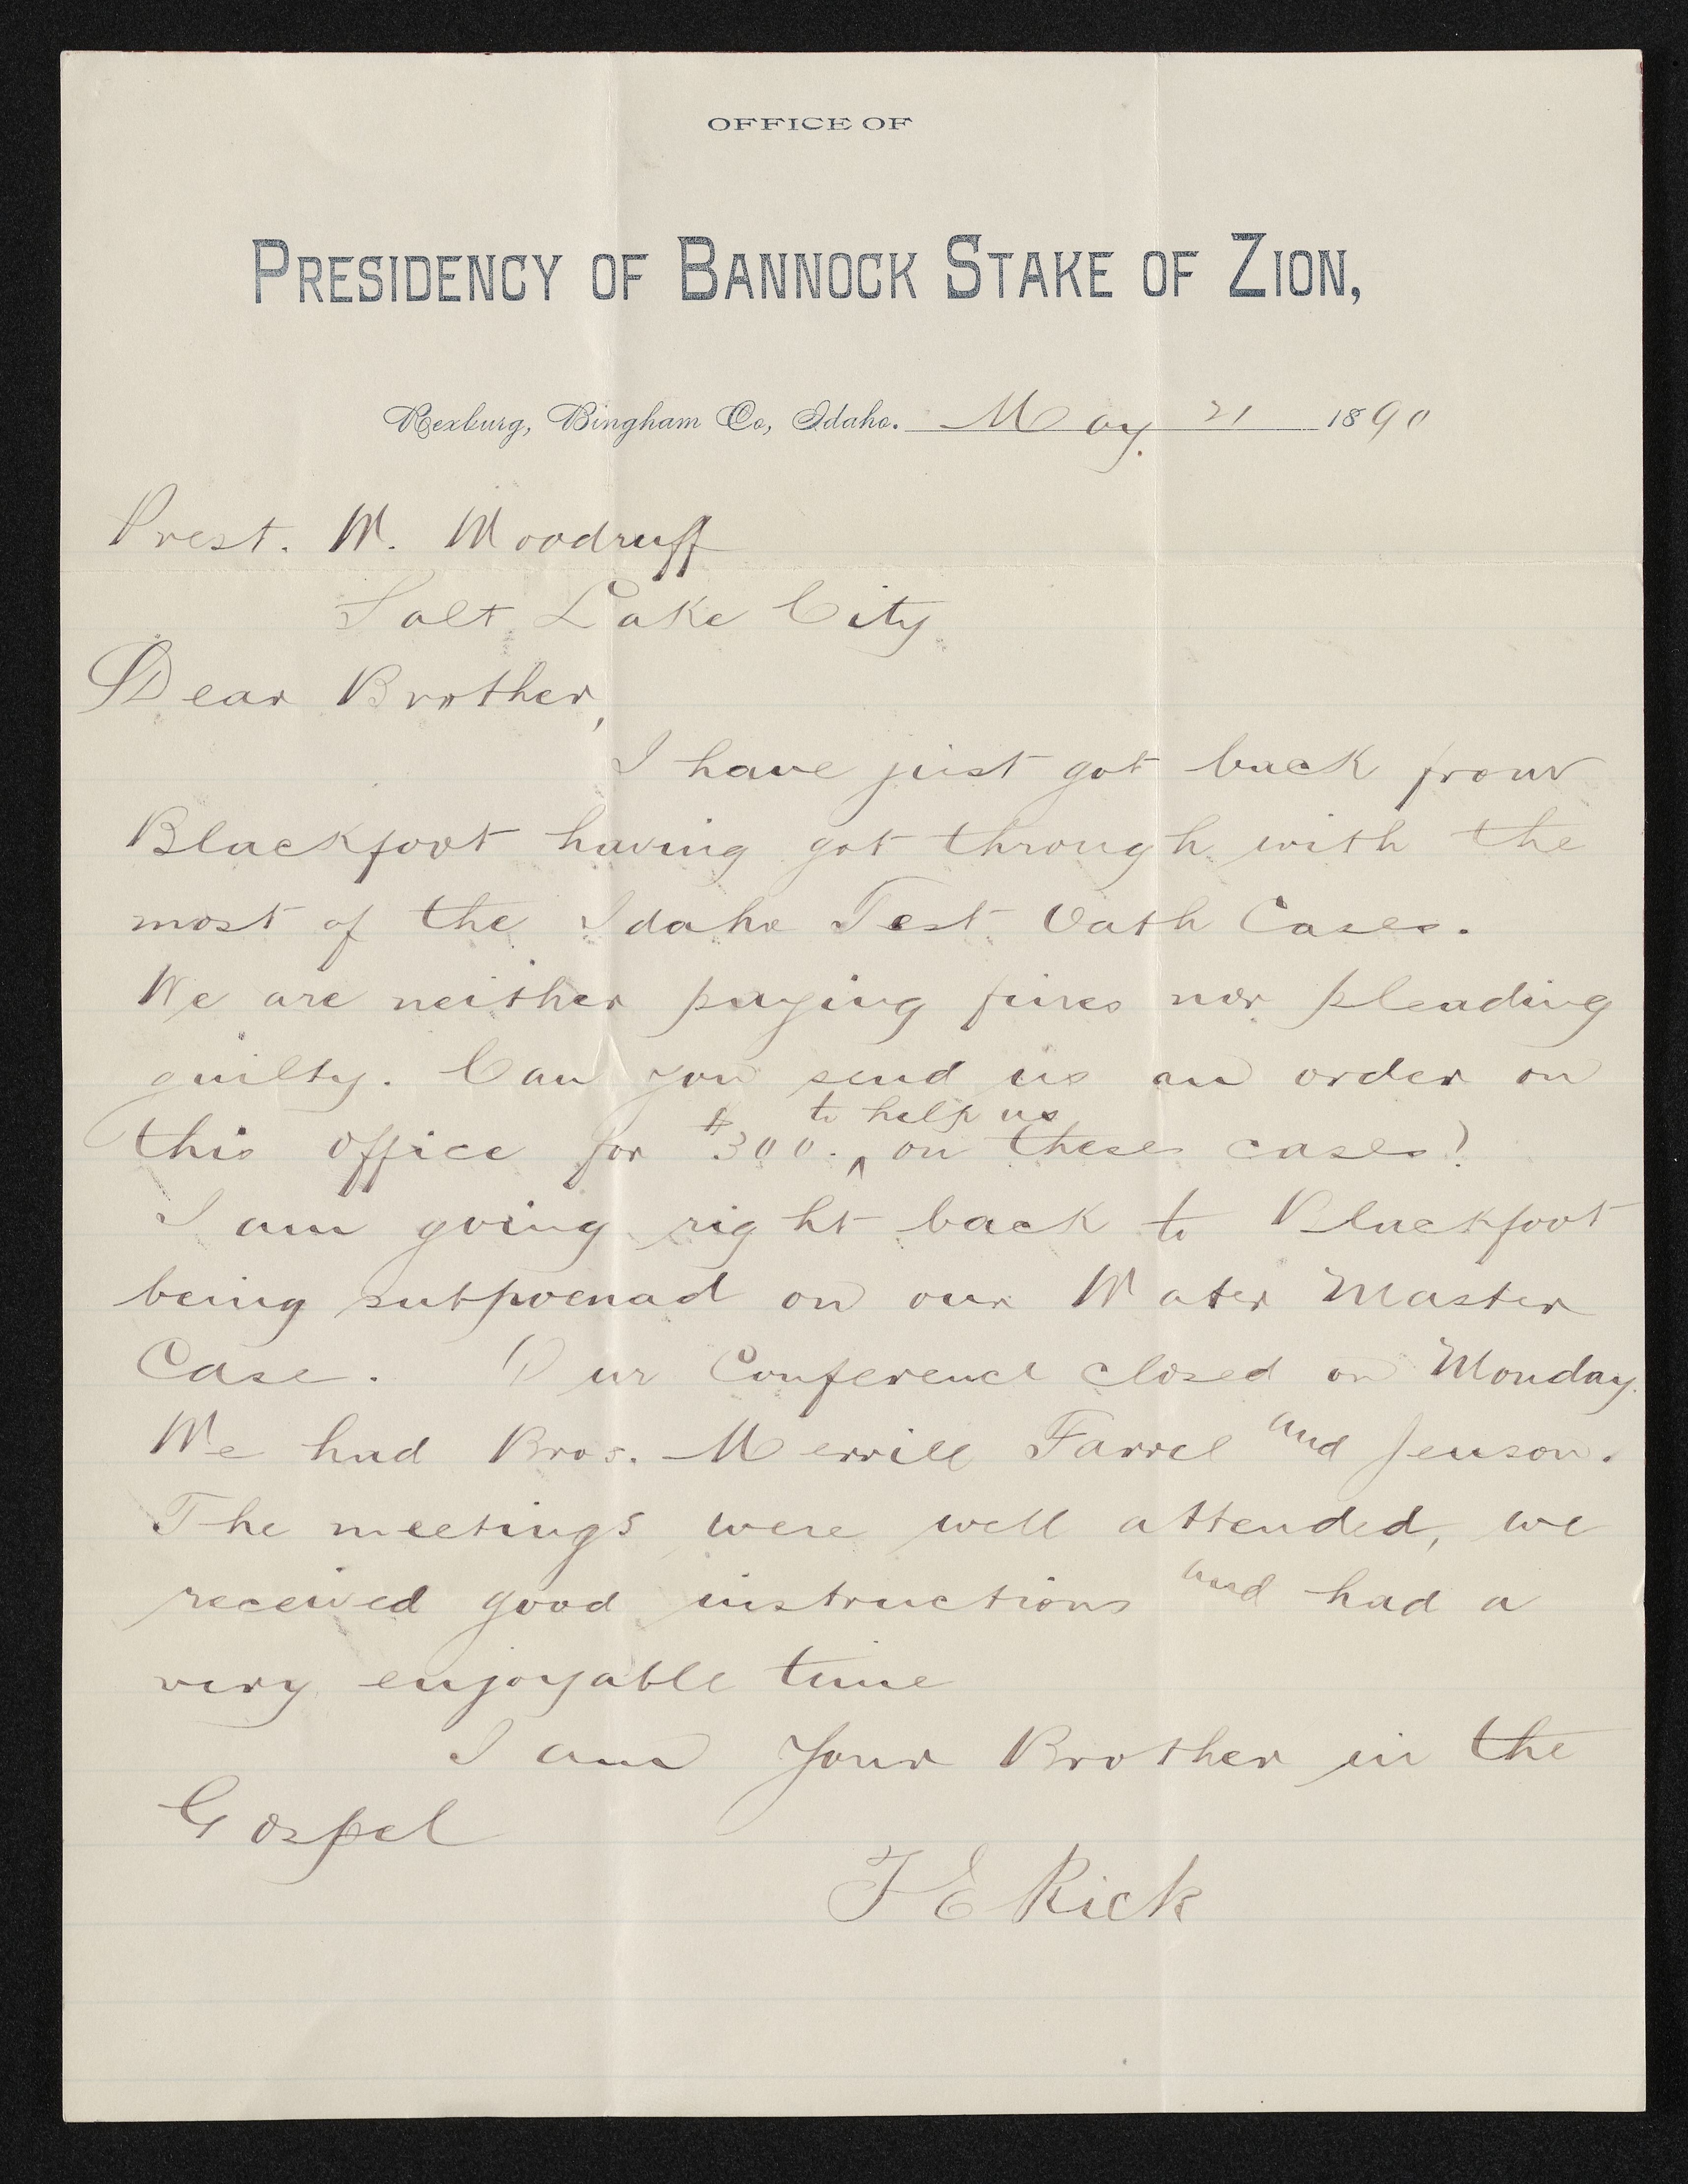 OFFICE OF
PRESIDENCY OF BANNOCK STAKE OF ZION,
Rexburg, Bingham Co, Idaho. May 21 1890
Prest. W. Woodruff
Salt Lake City
Dear Brother,
I have just got back from
Blackfoot having got through with the
most of the Idaho Test Oath Cases.
We are neither paying fines nor pleading
guilty. Can you send us an order on
to help us
this office for $300. ^ on these cases?
I am going right back to Blackfoot
being subpoenad on our Water Master
Case. Our Conference closed on Monday.
We had Bros. Merrill Farrel and Jenson.
The meetings were well attended, we
received good instructions and had a
very enjoyable time
I am Your Brother in the
Gospel
T E Rick